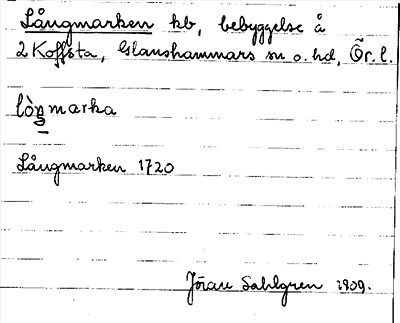 Långmarken kb, bebyggelse å
2 Koffsta, Glanshammars sn o. hd, Ör. l.
lò̀ŋmarka
Långmarken 1720
Jöran Sahlgren 1909.